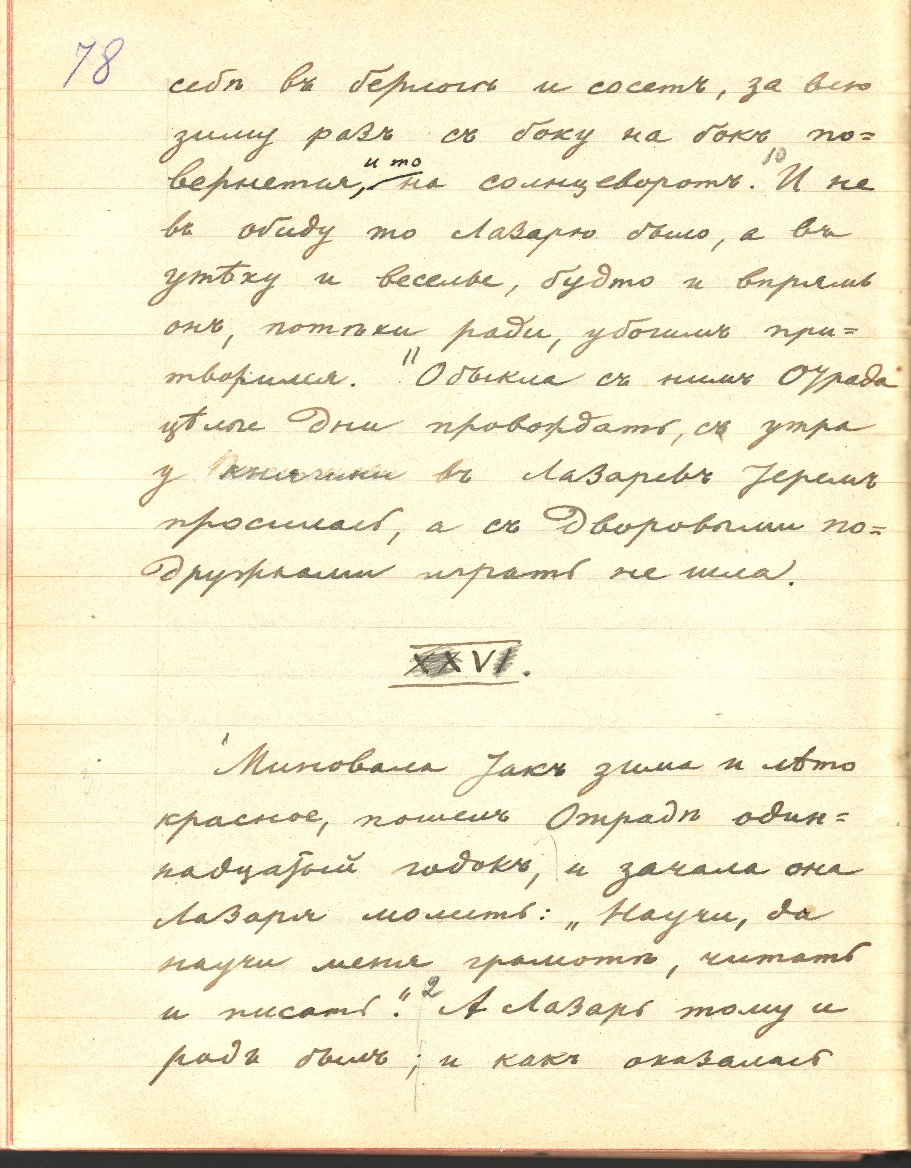 78
себѣ въ берлогѣ и сосетъ, за всю
зиму разъ съ боку на бокъ по=
вернется, и то на солнцеворотъ. 10 И не
въ обиду то Лазарю было, а въ
утѣху и веселье, будто и впрямь
онъ, потѣхи ради, убогимъ при=
творился. 11 Обыкла съ нимъ Отрада
цѣлые дни провождать, съ утра
у княгини въ Лазаревъ теремъ
просилась, а съ дворовыми по=
дружками играть не шла.
XXVI.
1 Миновала такъ зима и лѣто
красное, пошелъ Отрадѣ один=
надцатый годокъ, и зачала она
Лазаря молить: „Научи, да
научи меня грамотѣ, читать
и писать“. 2 А Лазарь тому и
радъ былъ; и какъ оказалась